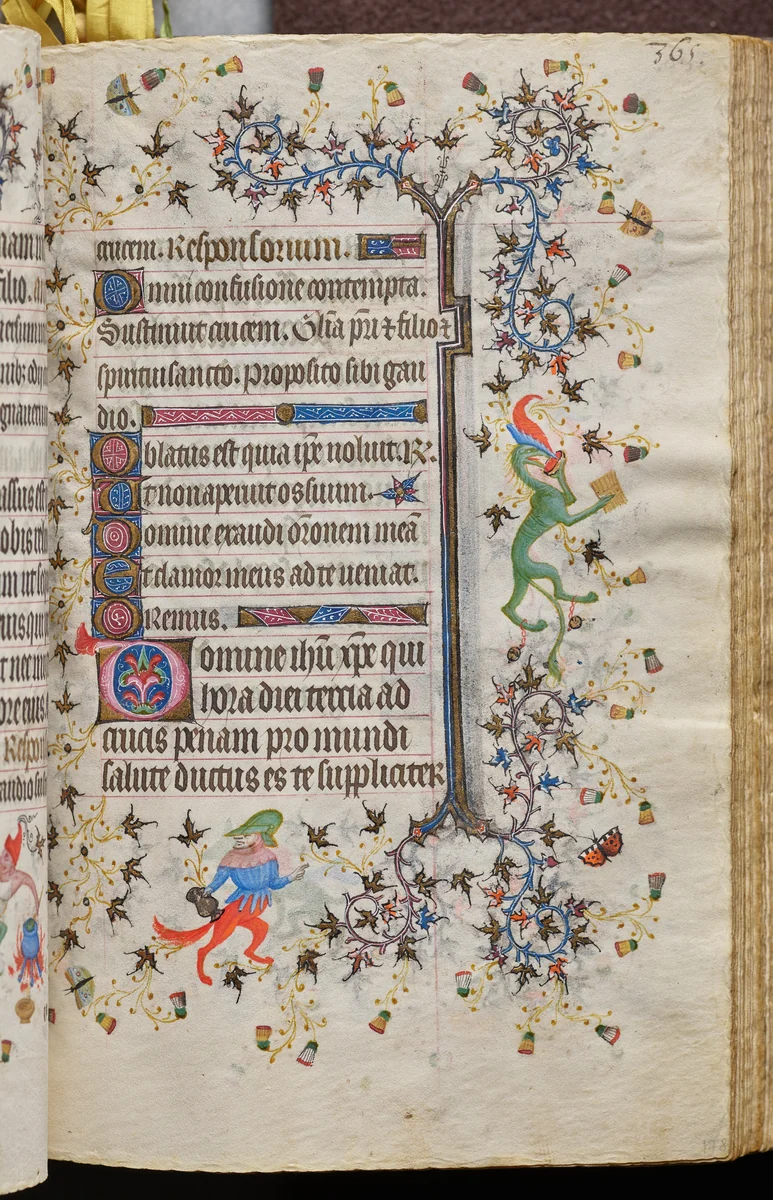 365.
crucem. Responsorium.
Omni confusione contempta.
Sustinuit crucem. Gl̄ia pr̄i ⁊ filio ⁊
spiritui sancto. Proposito sibi gau
dio.
Oblatus est quia ip̄e uoluit. R̸.
Et non aperuit os suum.
Domine exaudi or̄onem meā
Et clamor meus ad te ueniat.
Oremus.
Domine ih̄u xp̄e qui
hora diei tercia ad
crucis penam pro mundi
salute ductus es te suppliciter